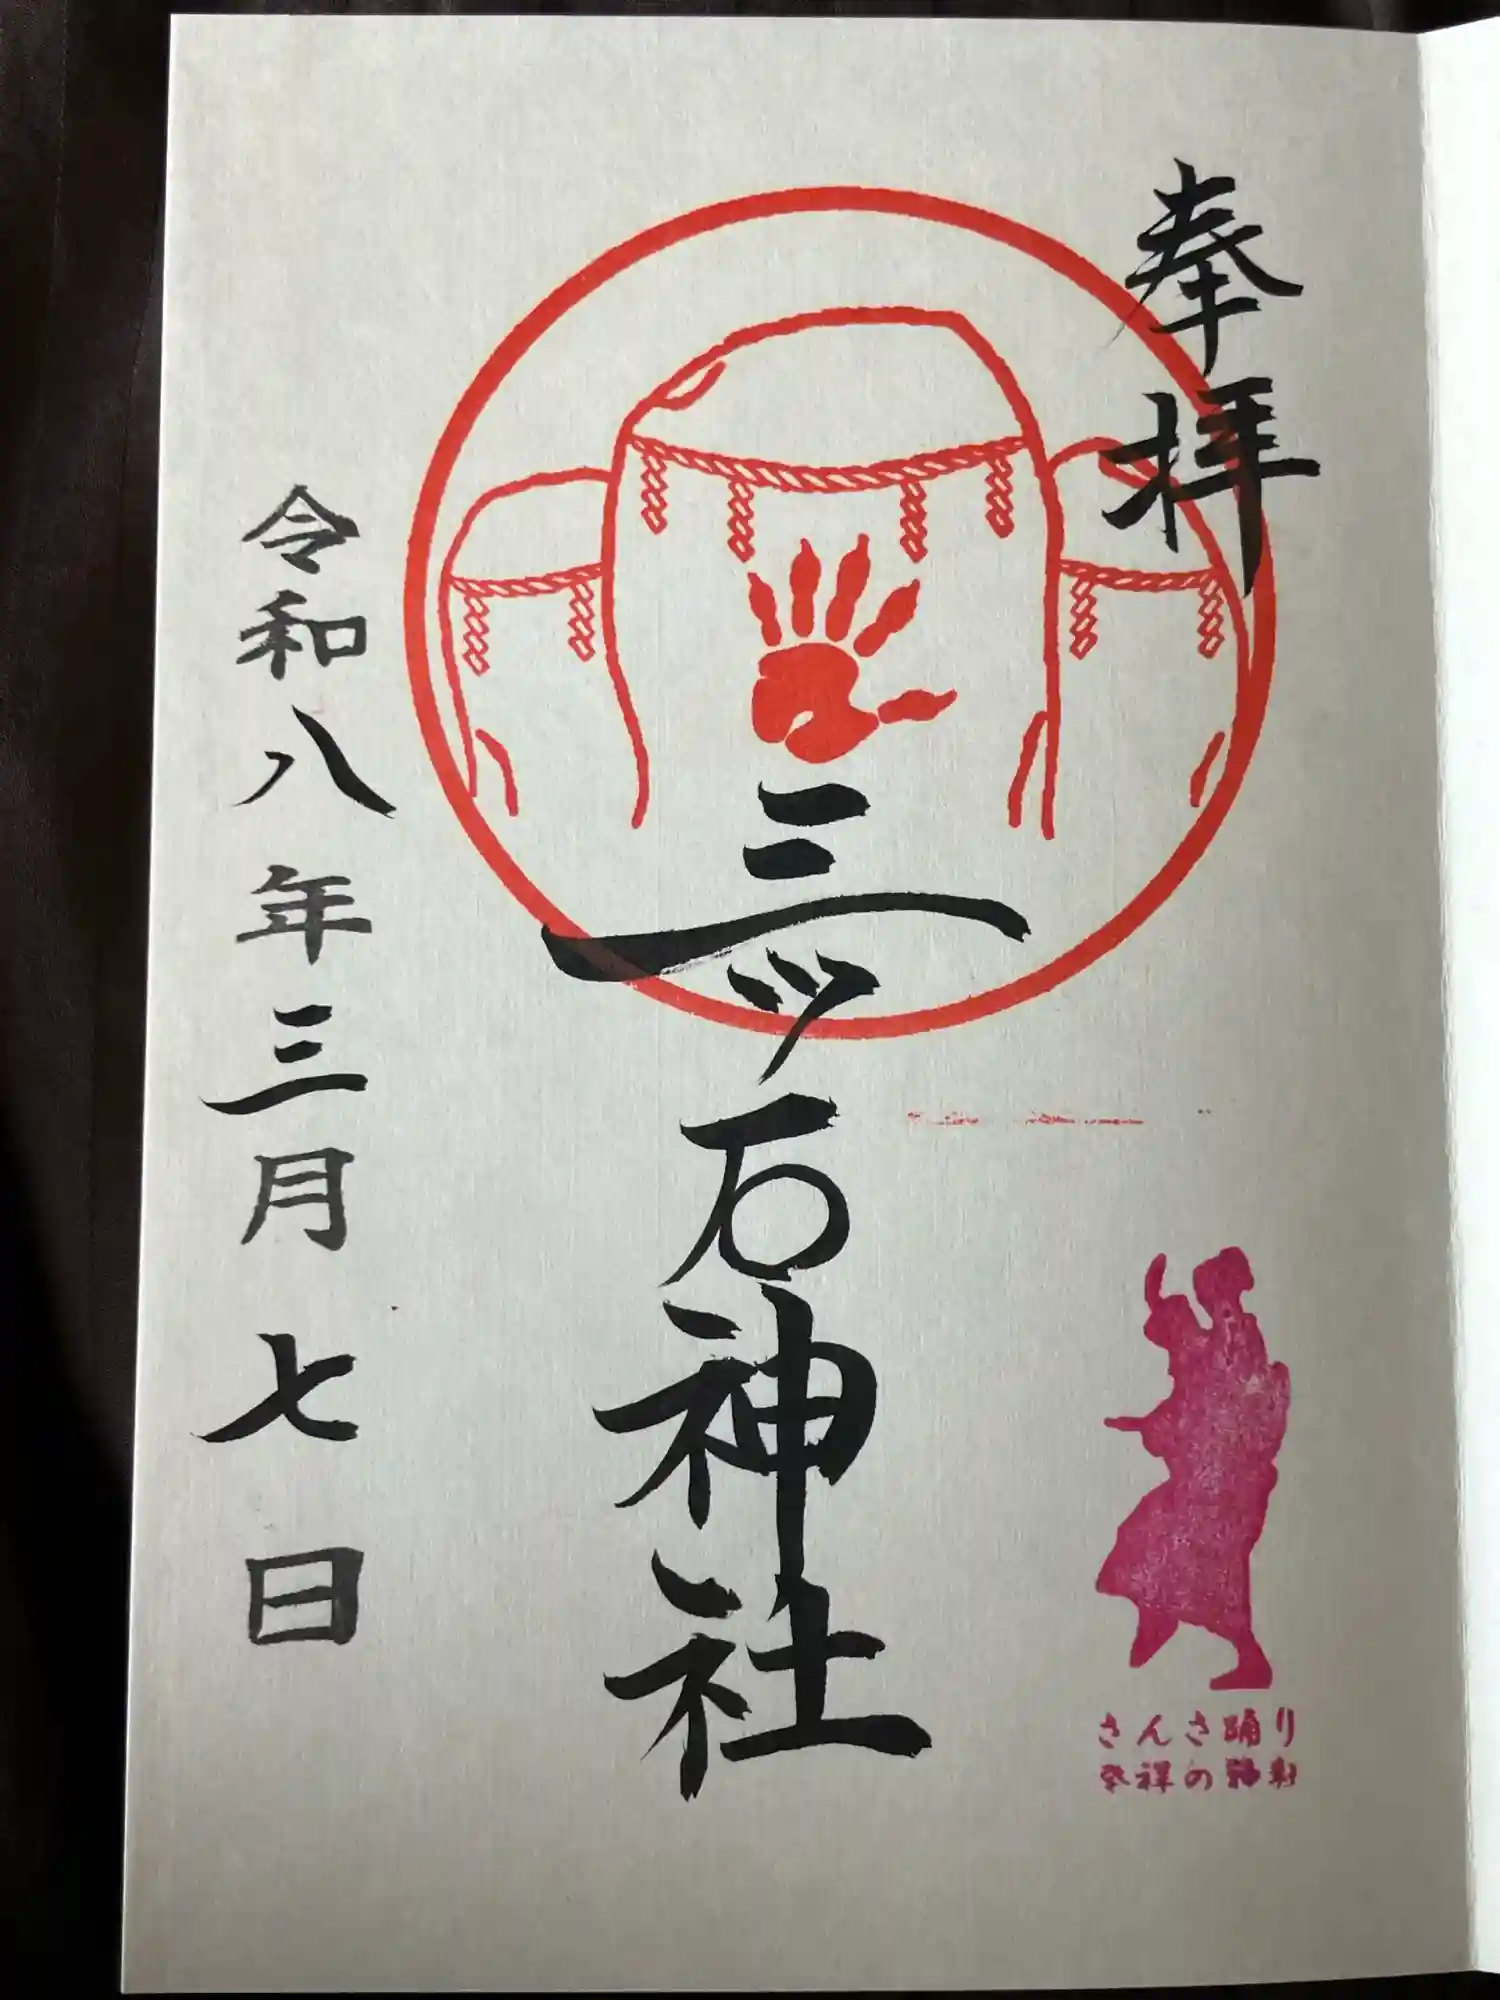 奉拝
三ッ石神社
令和八年三月七日
さんさ踊り
発祥の神社